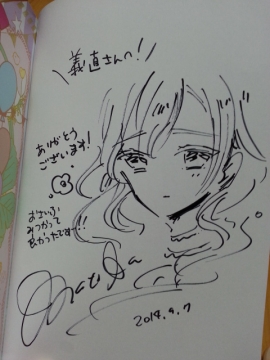 義直さんへ!
ありがとう
ございます!
おさいふ
みつかって
よかったです〜!!
2014.9.7